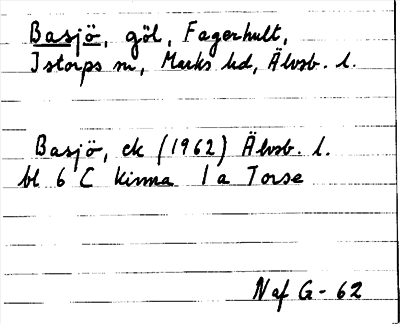 Basjö, göl, Fagerhult,
Istorps sn, Marks hd, Älvsb. l.
Basjö, ek (1962) Älvsb. l.
bl 6 C Kinna 1 a Torse
Naf G - 62